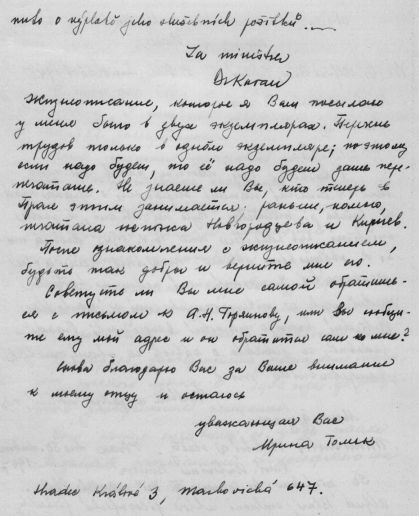 nebo o výplatě jeho služebních požitků. —
Za ministra
Dr Kotau
Жизнеописание, которое я Вам посылаю
у меня было в двух экземплярах. Перечень
трудов только в одном экземпляре; поэтому
если надо будет, то её надо будет дать пере-
печатать. Не знаете ли Вы, кто теперь в
Праге этим занимается. раньше, помню,
печатала Новгородцева и Кирьев.
После ознакомления с жизнеописанием,
будьте так добры и верните мне его.
Советуете ли Вы мне самой обратить-
ся с письмом к А.Н. Горяинову, или Вы сообщи-
те ему мой адрес и он обратится сам ко мне?
Снова благодарю Вас за Ваше внимание
к моему отцу и остаюсь
уважающая Вас
Ирина Томек
Hradec Králové 3, Markovická 647.